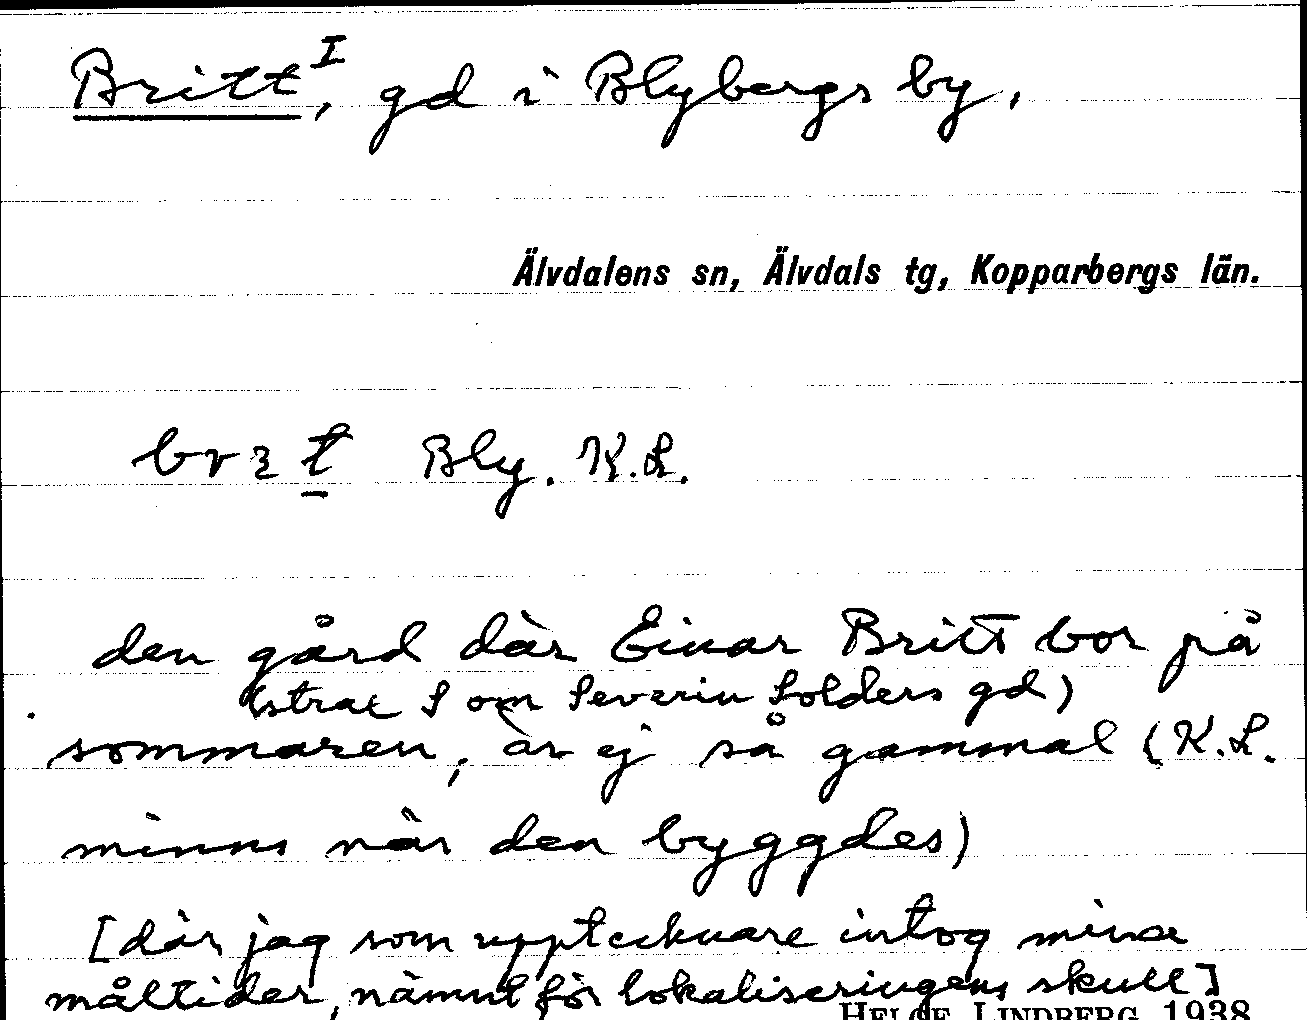 Britt I, gd i Blybergs by,
Älvdalens sn, Älvdals tg, Kopparbergs län.
Bly. K.L.
den gård där Einar Britt bor på
(strax S om Severin Solders gd)
sommaren, är ej så gammal (K.L.
minns när den byggdes)
[där jag som upptecknare intog mina
måltider, nämnt för lokaliseringens skull]
HELGE LINDBERG 1938